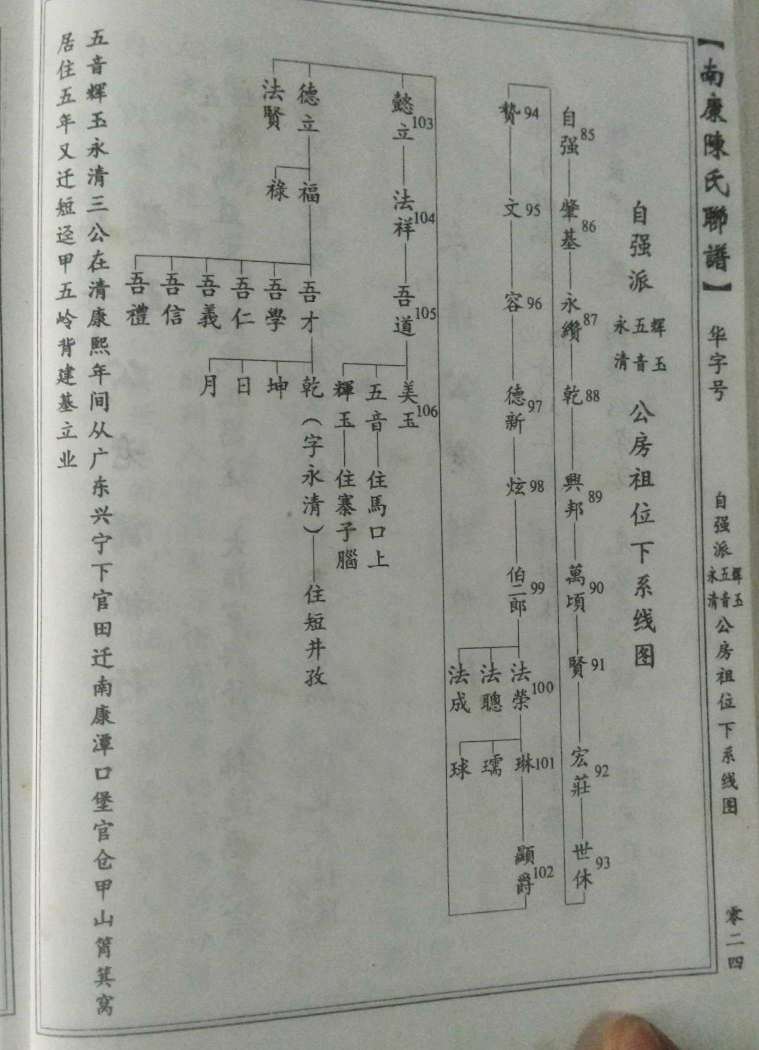 【南康陳氏聯譜】 华字号 自强派 永清 五音 輝玉 公房祖位下系线图 零二四
自强派 永清 五音 輝玉 公房祖位下系线图
自强 85 肇基 86 永纘 87 乾 88 興邦 89 萬頃 90 賢 91 宏莊 92 世休 93
贄 94 文 95 容 96 德新 97 炫 98 伯二郎 99 法榮 100 琳 101 顯爵 102
法聰 瓀
法成 球
懿立 103 法祥 104 吾道 105 美玉 106
五音 住馬口上
輝玉 住寨子腦
德立 福 吾才 乾（字永清） 住短井孜
法賢 祿 吾學 坤
吾仁 日
吾義 月
吾信
吾禮
五音辉玉永清三公在清康熙年间从广东兴宁下官田迁南康潭口堡官仓甲山筲箕窝
居住五年又迁短迳甲五岭背建基立业